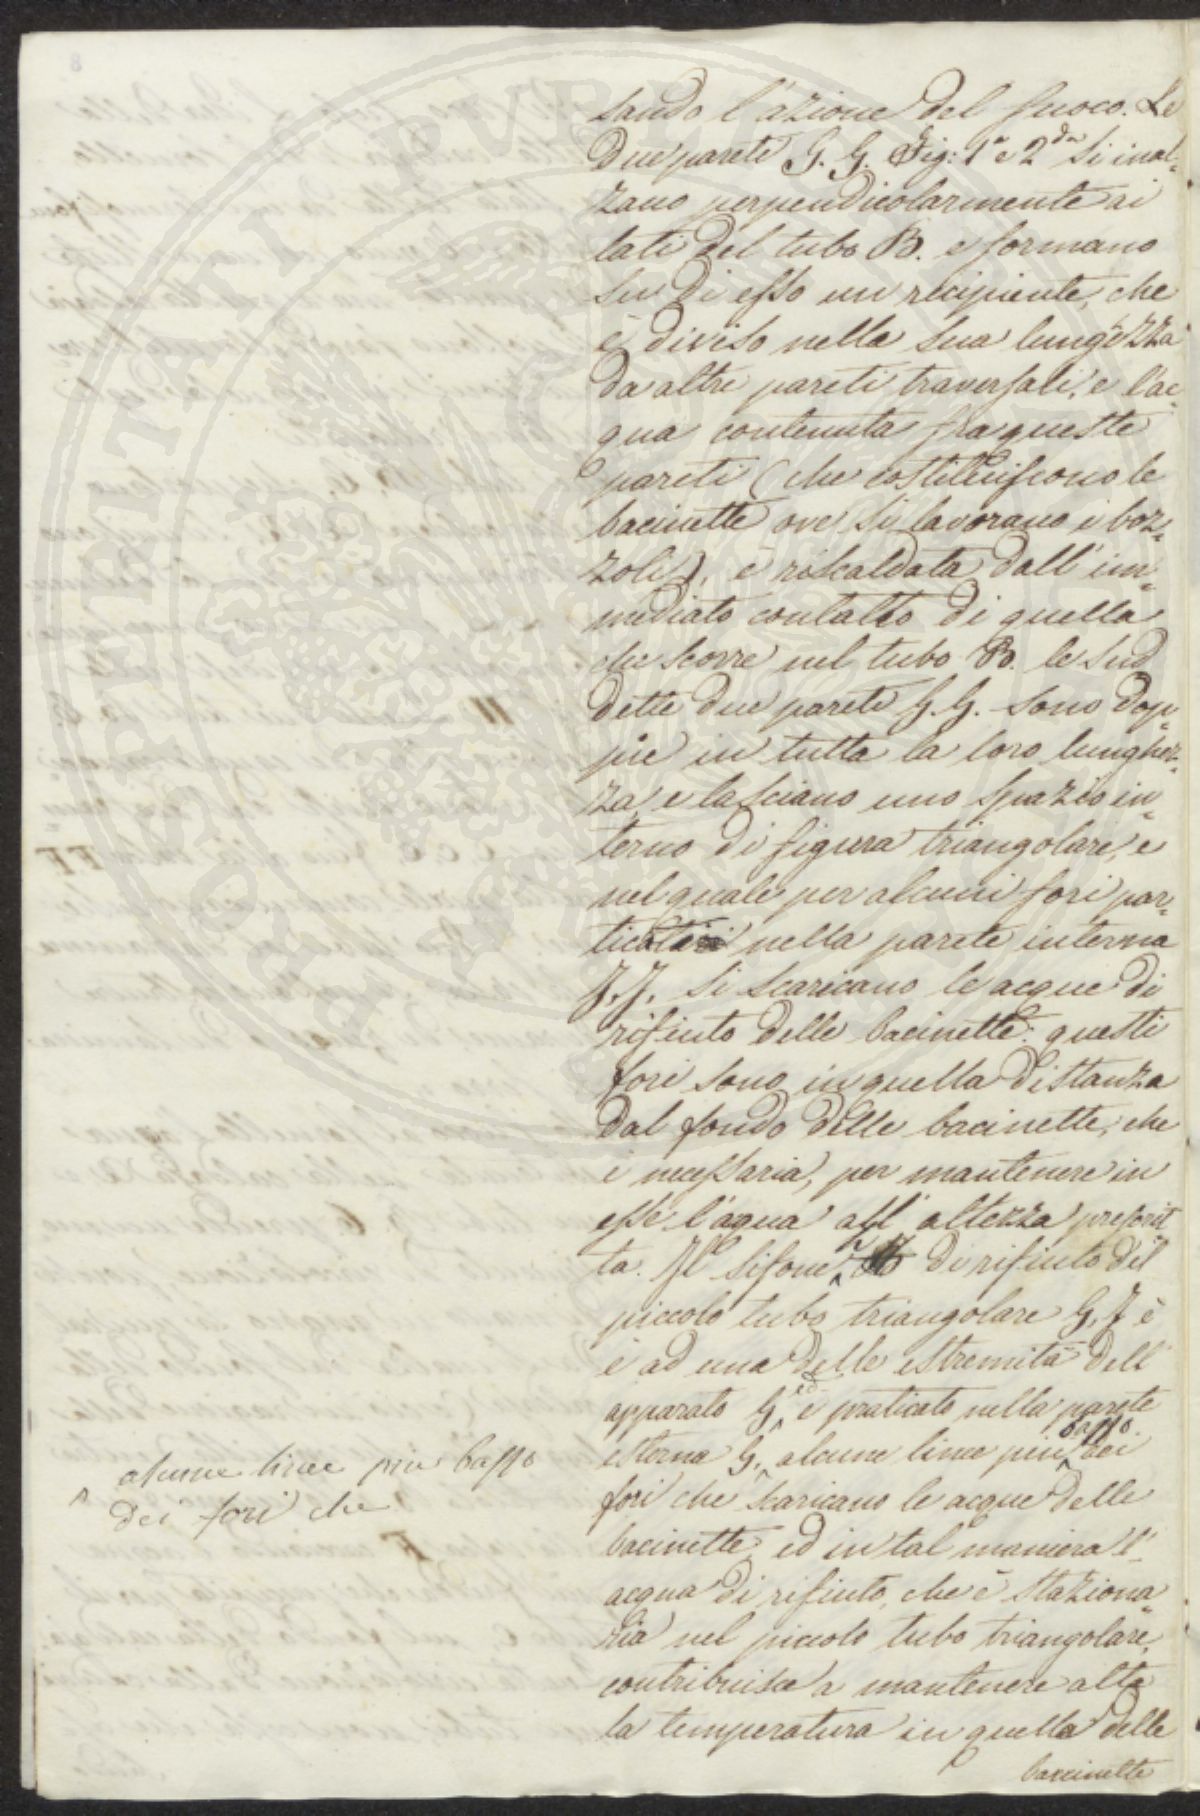 sando l'azione del fuoco. Le
due parete G. G. Fig: 1ª e 2da si inal=
zano perpendicolarmente ai
lati del tubo B. e formano
su di esso un recipiente, che
è diviso nella sua lunghezza
da altre pareti traversali, e l'ac=
qua contenuta fra queste
pareti (che costituiscono le
bacinette ove si lavorano i boz=
zoli), è riscaldata dall'im=
mediato contatto di quella
che scorre nel tubo B. le sud
dette due parete G. G. sono dop=
pie in tutta la loro lunghez=
za, e lasciano uno spazio in=
terno di figura triangolare, e
nel quale per alcuni fori par=
ticolari nella parete interna
J. J. si scaricano le acque di
rifiuto delle bacinette: questi
fori sono in quella distanza
dal fondo delle bacinette, che
è necessaria, per mantenere in
esse l'aqua all' altezza prescrit
ta. Il sifone di rifiuto del
piccolo tubo triangolare G. J è
è ad una delle estremità dell'
apparato G, ed è praticato nella parete
esterna G. alcune linee più basso dei
fori che scaricano le acque delle
bacinette, ed in tal maniera l'
acqua di rifiuto, che è staziona=
ria nel piccolo tubo triangolare,
contribuisce a mantenere alta
la temperatura in quella delle
baccinette
alcune linee piu basso
dei fori che
POSPERITATI PVBLIC